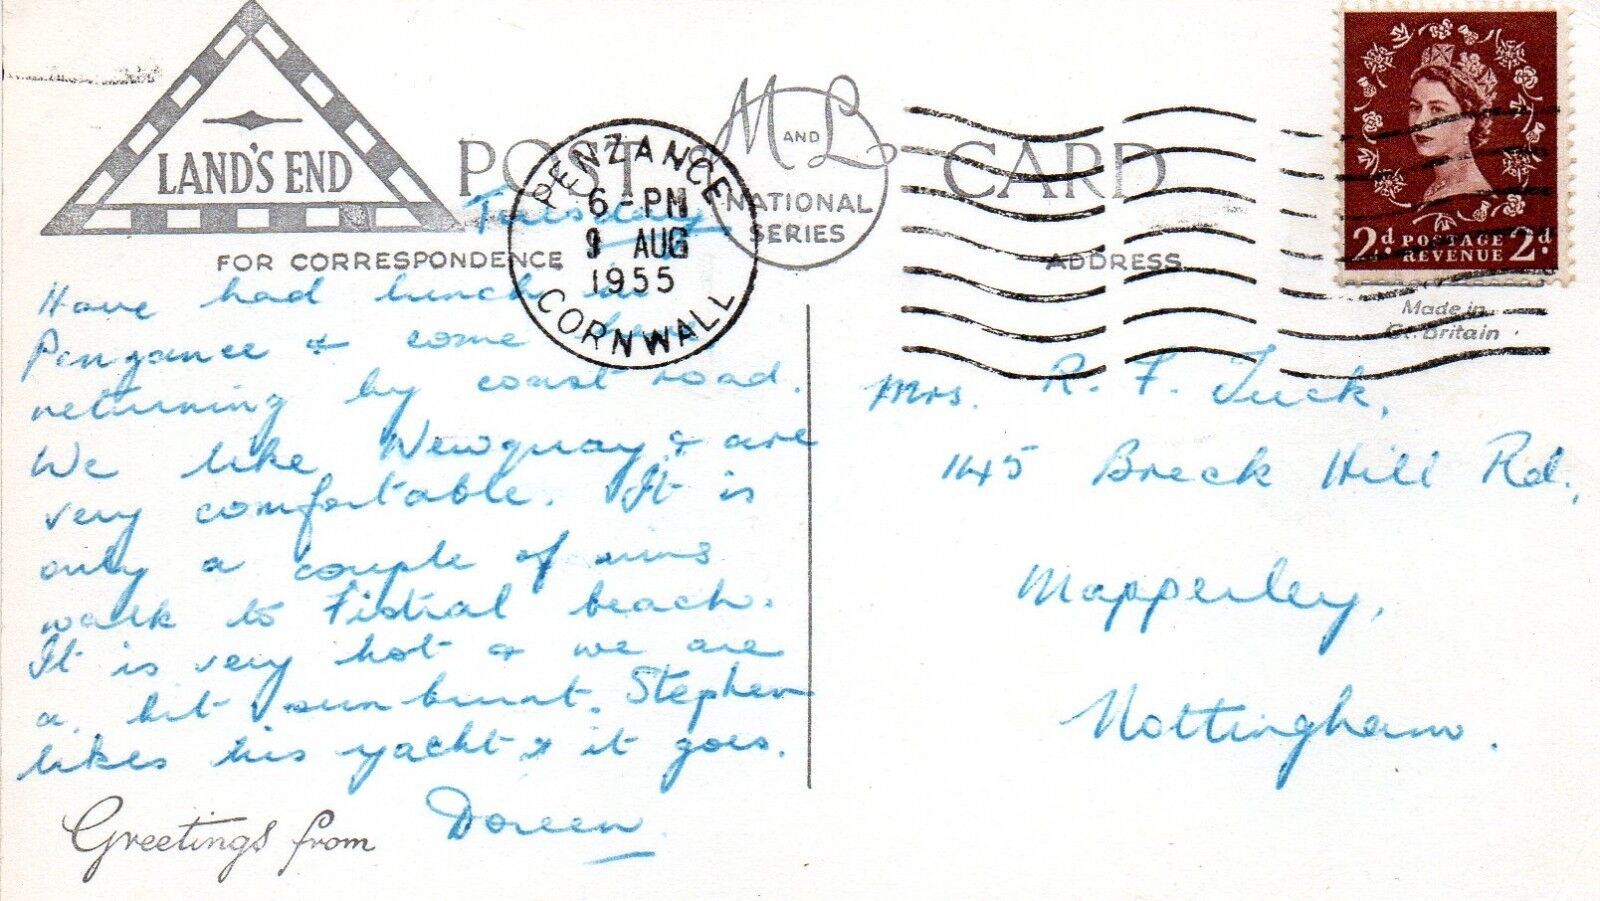 LAND'S END
POST CARD
M AND L
NATIONAL
SERIES
PENZANCE
6-PM
9 AUG
1955
CORNWALL
2d POSTAGE 2d
REVENUE
FOR CORRESPONDENCE
ADDRESS
Made in
Gt. Britain
Tuesday
Have had lunch in
Penzance & come here
returning by coast road.
We like Newquay & are
very comfortable. It is
only a couple of mins
walk to Fistral beach.
It is very hot & we are
a bit sunburnt. Stephen
likes his yacht & it goes.
Greetings from Doreen
Mrs. R. F. Tuck,
145 Breck Hill Rd.,
Mapperley,
Nottingham.